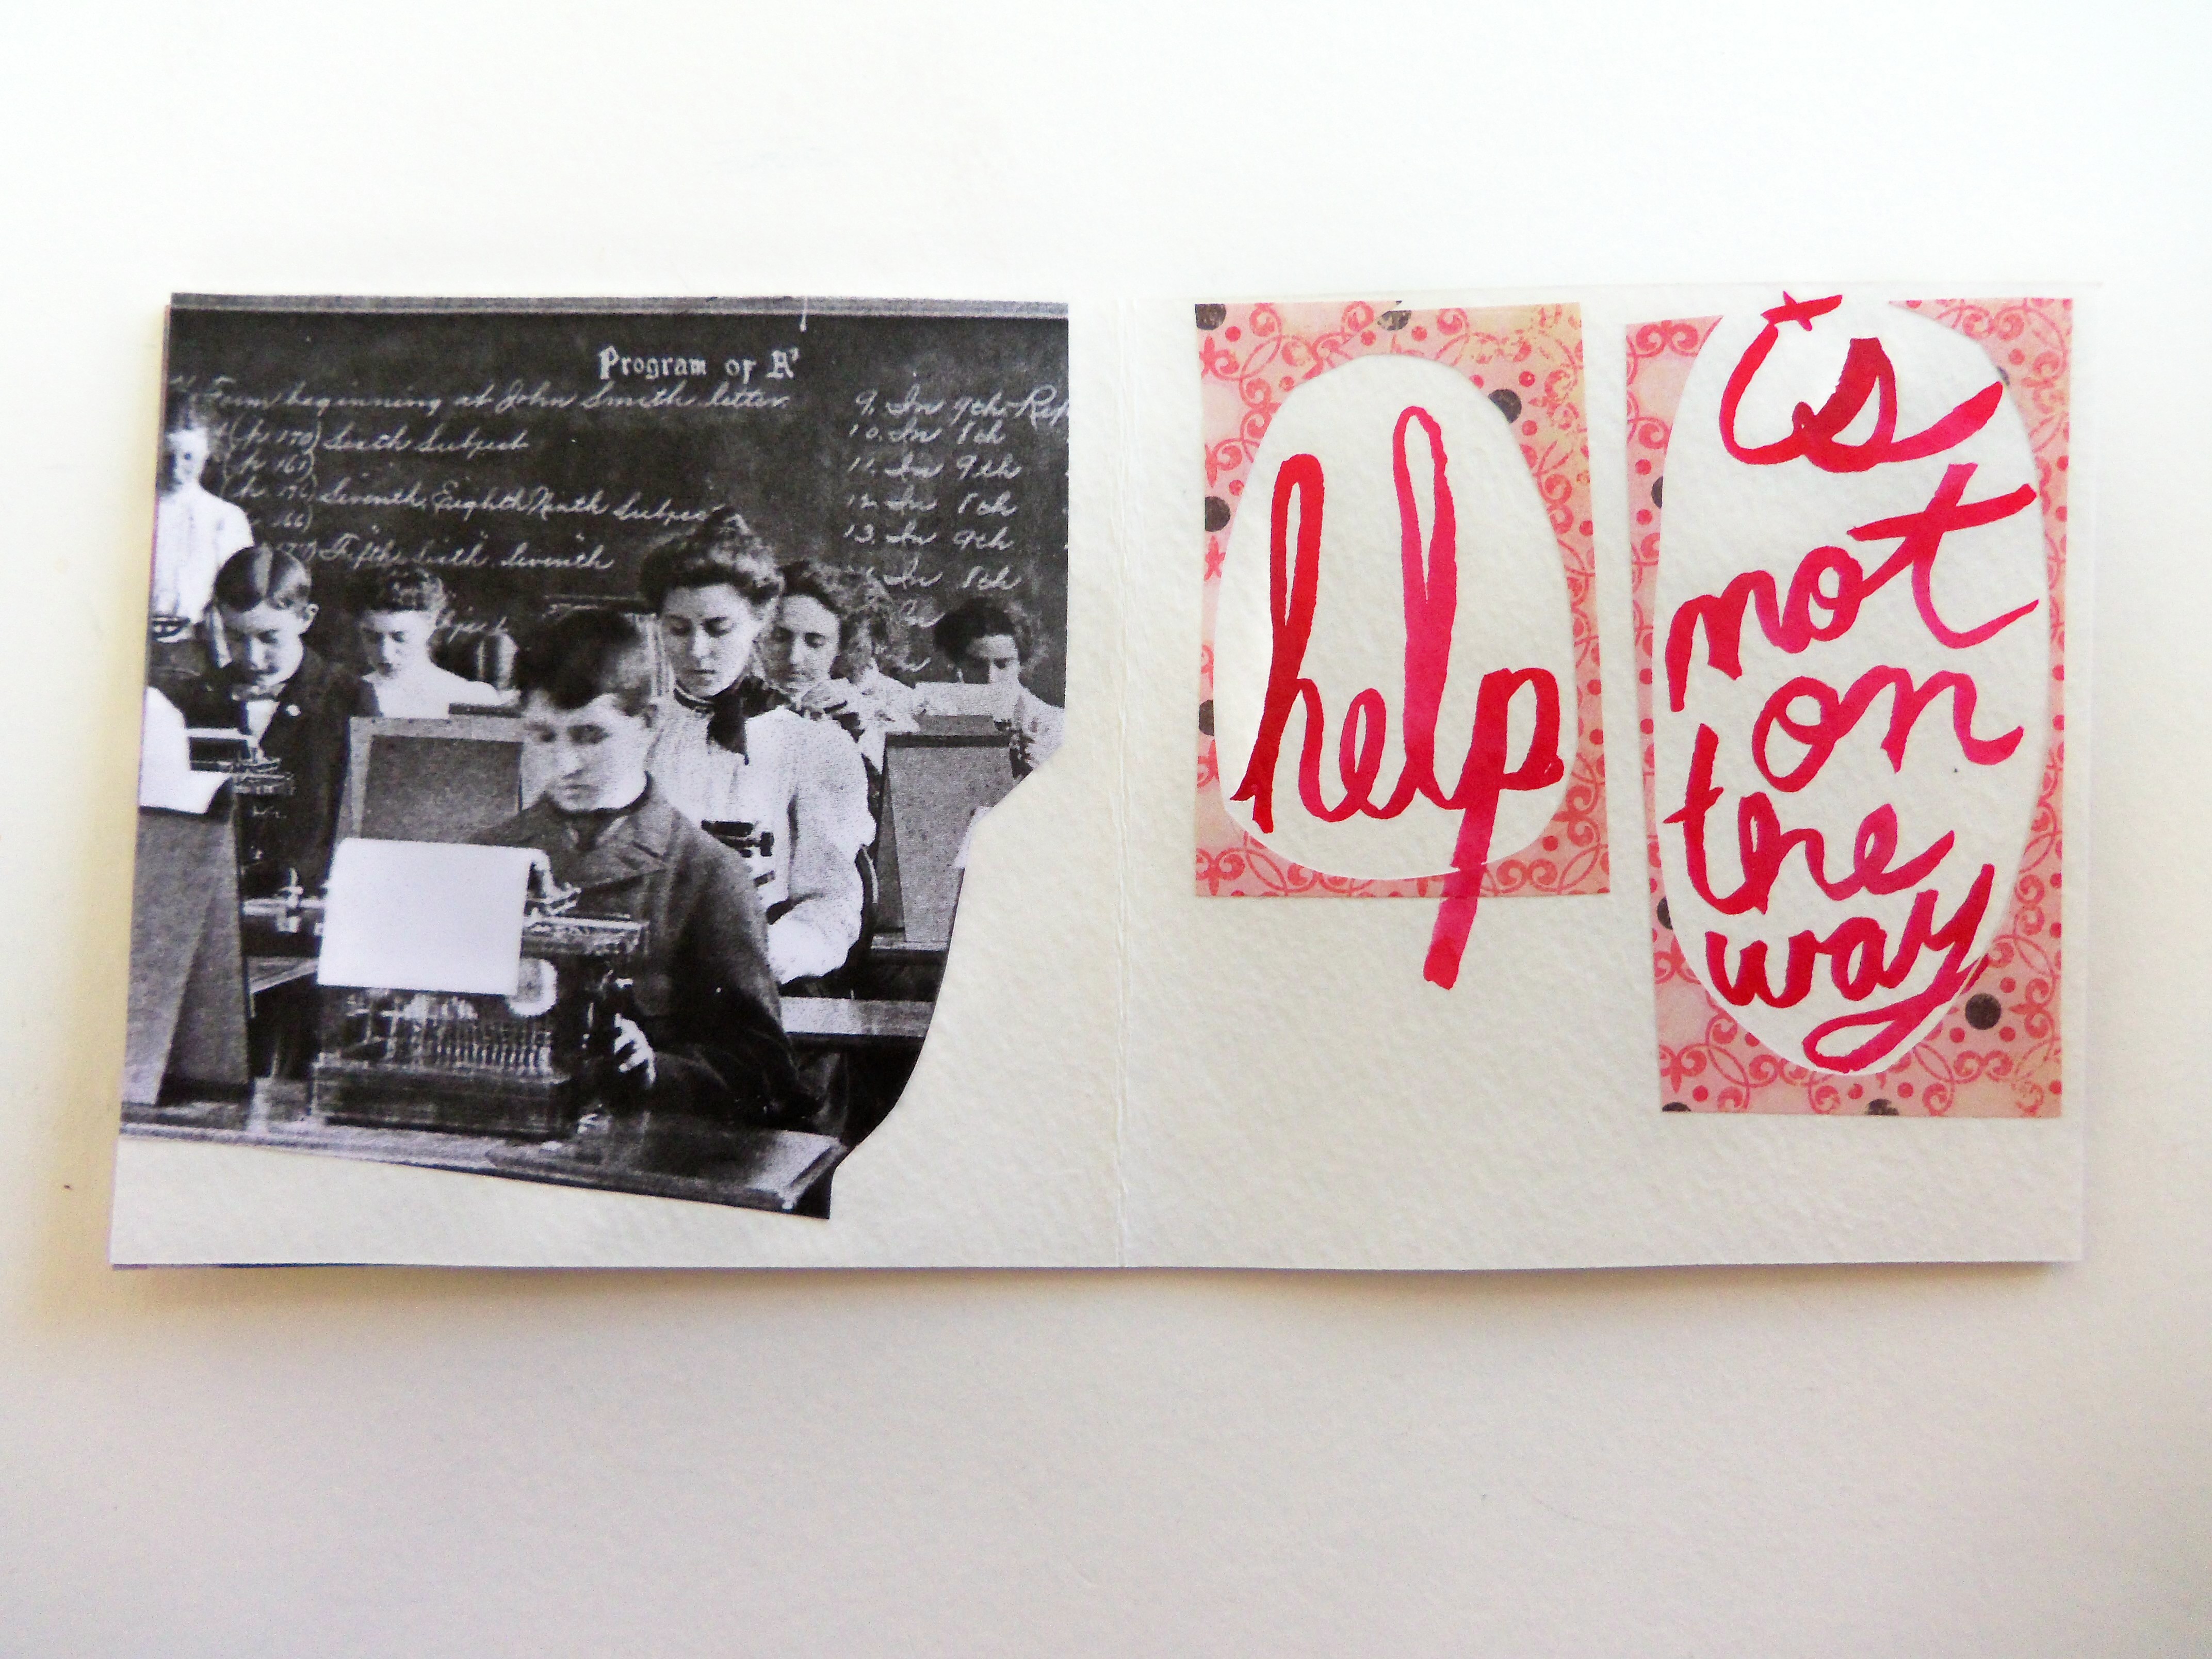 Program of A
From beginning at John Smith letter.
(p 170) Sixth Subject
(p 161)
(p 176) Seventh, Eighth, Ninth Subject
166)
Fifth, Sixth, Seventh
9. In 9th
10. In 8th
11. In 9th
12. In 8th
13. In 9th
In 8th
help
is
not
on
the
way